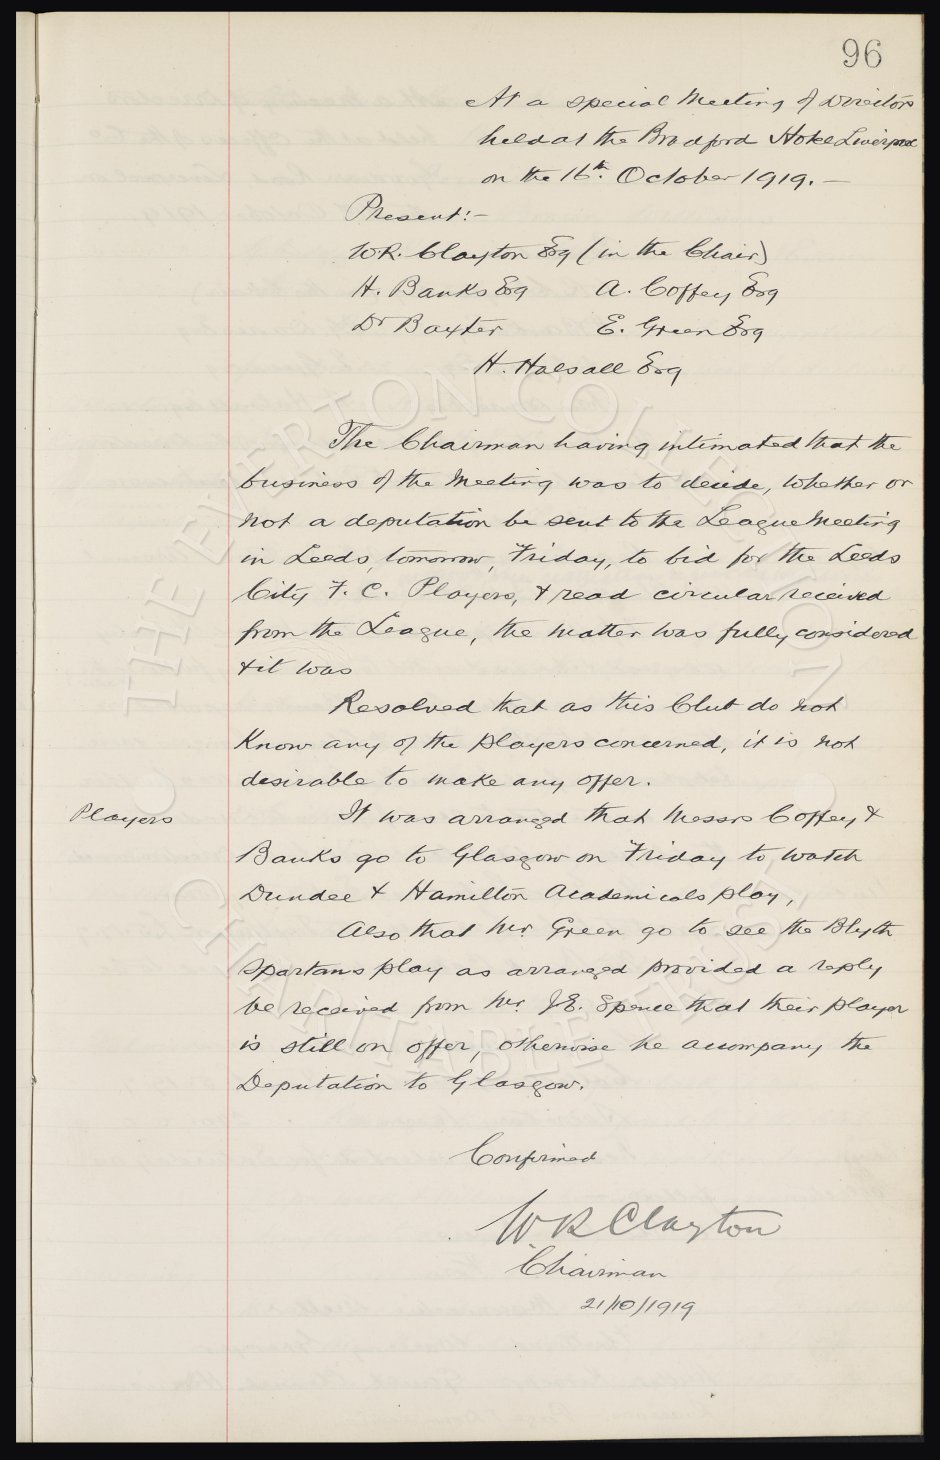 96
At a special Meeting of Directors
held at the Bradford Hotel Liverpool
on the 16th. October 1919. —
Present:-
W.R. Clayton Esq (in the Chair)
H. Banks Esq A. Coffey Esq
Dr Baxter E. Green Esq
H. Halsall Esq
The Chairman having intimated that the
business of the Meeting was to decide, whether or
not a deputation be sent to the League Meeting
in Leeds, tomorrow, Friday, to bid for the Leeds
City F. C. Players, & read circular received
from the League, the matter was fully considered
& it was
Resolved that as this Club do not
know any of the players concerned, it is not
desirable to make any offer.
Players
It was arranged that Messrs Coffey &
Banks go to Glasgow on Friday to watch
Dundee & Hamilton Academicals play,
Also that Mr. Green go to see the Blyth
Spartans play as arranged provided a reply
be received from Mr. J.E. Spence that their player
is still on offer, otherwise he accompany the
Deputation to Glasgow.
Confirmed
W R Clayton
Chairman
21/10/1919
THE EVERTON COLLECTION
CHARITABLE TRUST